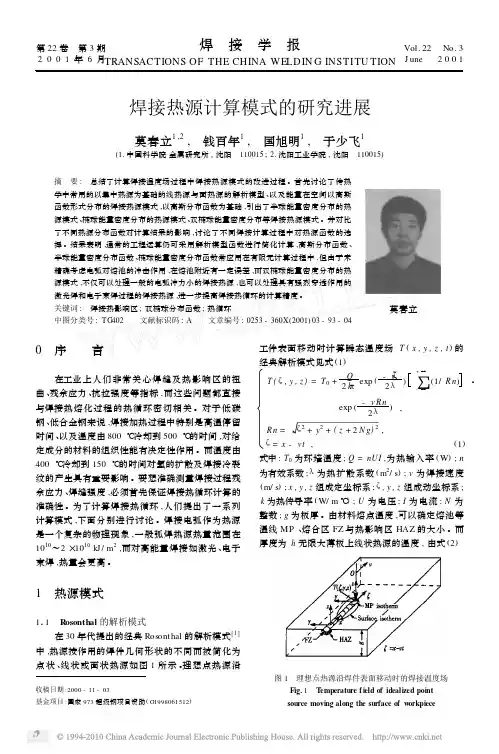 第22卷 第3期
2001年6月
焊接学报
TRANSACTIONS OF THE CHINA WELDING INSTITUTION
Vol. 22 No. 3
June 2001
焊接热源计算模式的研究进展
莫春立1,2， 钱百年1， 国旭明1， 于少飞1
(1. 中国科学院 金属研究所, 沈阳 110015; 2. 沈阳工业学院, 沈阳 110015)
摘 要: 总结了计算焊接温度场过程中焊接热源模式的改进过程。首先讨论了传热
学中常用的以集中热源为基础的线热源与面热源的解析模型, 以及能量在空间以高斯
函数形式分布的焊接热源模式, 以高斯分布函数为基础, 引出了半球能量密度分布的热
源模式、椭球能量密度分布的热源模式、双椭球能量密度分布等焊接热源模式。并对比
了不同热源分布函数对计算结果的影响, 讨论了不同焊接计算过程中对热源函数的选
择。结果表明, 通常的工程运算仍可采用解析模型函数进行简化计算, 高斯分布函数、
半球能量密度分布函数、椭球能量密度分布函数常应用在有限元计算过程中, 但由于未
精确考虑电弧对熔池的冲击作用, 在熔池附近有一定误差, 而双椭球能量密度分布的热
源模式, 不仅可以处理一般的电弧冲力小的焊接热源, 也可以处理具有强烈穿透作用的
激光焊和电子束焊过程的焊接热源, 进一步提高焊接热循环的计算精度。
关键词: 焊接热影响区; 双椭球分布函数; 热循环
中图分类号: TG402 文献标识码: A 文章编号: 0253-360X(2001)03-93-04
莫春立
0 序 言
在工业上人们非常关心焊缝及热影响区的扭
曲、残余应力、抗拉强度等指标, 而这些问题都直接
与焊接热熔化过程的热循环密切相关。对于低碳
钢、低合金钢来说, 焊接加热过程中特别是高温停留
时间、以及温度由800 ℃冷却到500 ℃的时间, 对给
定成分的材料的组织性能有决定性作用。而温度由
400 ℃冷却到150 ℃的时间对氢的扩散及焊接冷裂
纹的产生具有重要影响。要想准确测量焊接过程残
余应力、焊缝强度, 必须首先保证焊接热循环计算的
准确性。为了计算焊接热循环, 人们提出了一系列
计算模式, 下面分别进行讨论。焊接电弧作为热源
是一个复杂的物理现象, 一般弧焊热源热量范围在
kJ/m2, 而对高能量焊接如激光、电子
束焊, 热量会更高。
1 热源模式
1.1 Rosonthal 的解析模式
在30年代提出的经典 Rosonthal 的解析模式[1]
中, 热源按作用的焊件几何形状的不同而被简化为
点状、线状或面状热源如图1所示。理想点热源沿
收稿日期: 2000-11-03
工件表面移动时计算瞬态温度场 T(x, y, z, t)的
经典解析模式见式(1)
ζ = x - vt , (1)
式中: T0 为环境温度; Q = nUI, 为热输入率(W); n
为有效系数; λ 为热扩散系数(m2/s); v 为焊接速度
(m/s); x, y, z 组成定坐标系; ζ, y, z 组成动坐标系;
k 为热传导率(W/m℃; U 为电压; I 为电流; N 为
整数; g 为板厚。由材料熔点温度, 可以确定熔池等
温线 MP、熔合区 FZ 与热影响区 HAZ 的大小。而
厚度为 h 无限大薄板上线状热源的温度, 由式(2)
MP isotherm
Surface isotherm
FZ
HAZ
ζ=x-vt
图1 理想点热源沿焊件表面移动时的焊接温度场
Fig. 1 Temperature field of idealized point
source moving along the surface of workpiece
© 1994-2010 China Academic Journal Electronic Publishing House. All rights reserved. http://www.cnki.net